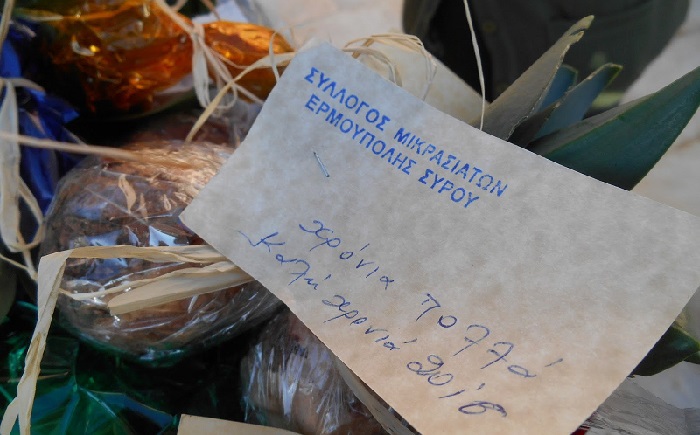 ΣΥΛΛΟΓΟΣ ΜΙΚΡΑΣΙΑΤΩΝ
ΕΡΜΟΥΠΟΛΗΣ ΣΥΡΟΥ
χρόνια πολλά
Καλή χρονιά 2016